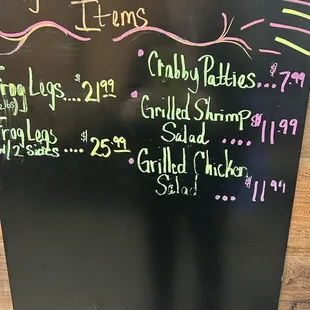 Items
Frog Legs
.... $21.99
Frog Legs
w/2 Sides .... $25.99
Crabby Patties... $7.99
Grilled Shrimp
Salad ..... $11.99
Grilled Chicken
Salad ... $11.99